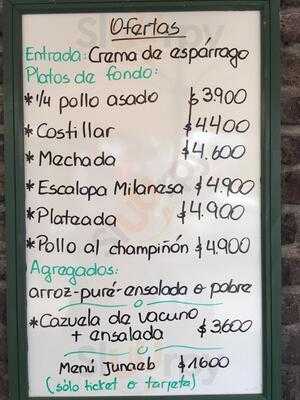 Ofertas
Entrada: Crema de espárrago
Platos de fondo:
* 1/4 pollo asado $3.900
* Costillar $4400
* Mechada $4.600
* Escalopa Milanesa $4.900
* Plateada $4.900
* Pollo al champiñón $4.900
Agregados:
arroz-puré-ensalada o pobre
* Cazuela de vacuno
+ ensalada $3600
Menú Junaeb $1600
(sólo ticket o tarjeta)